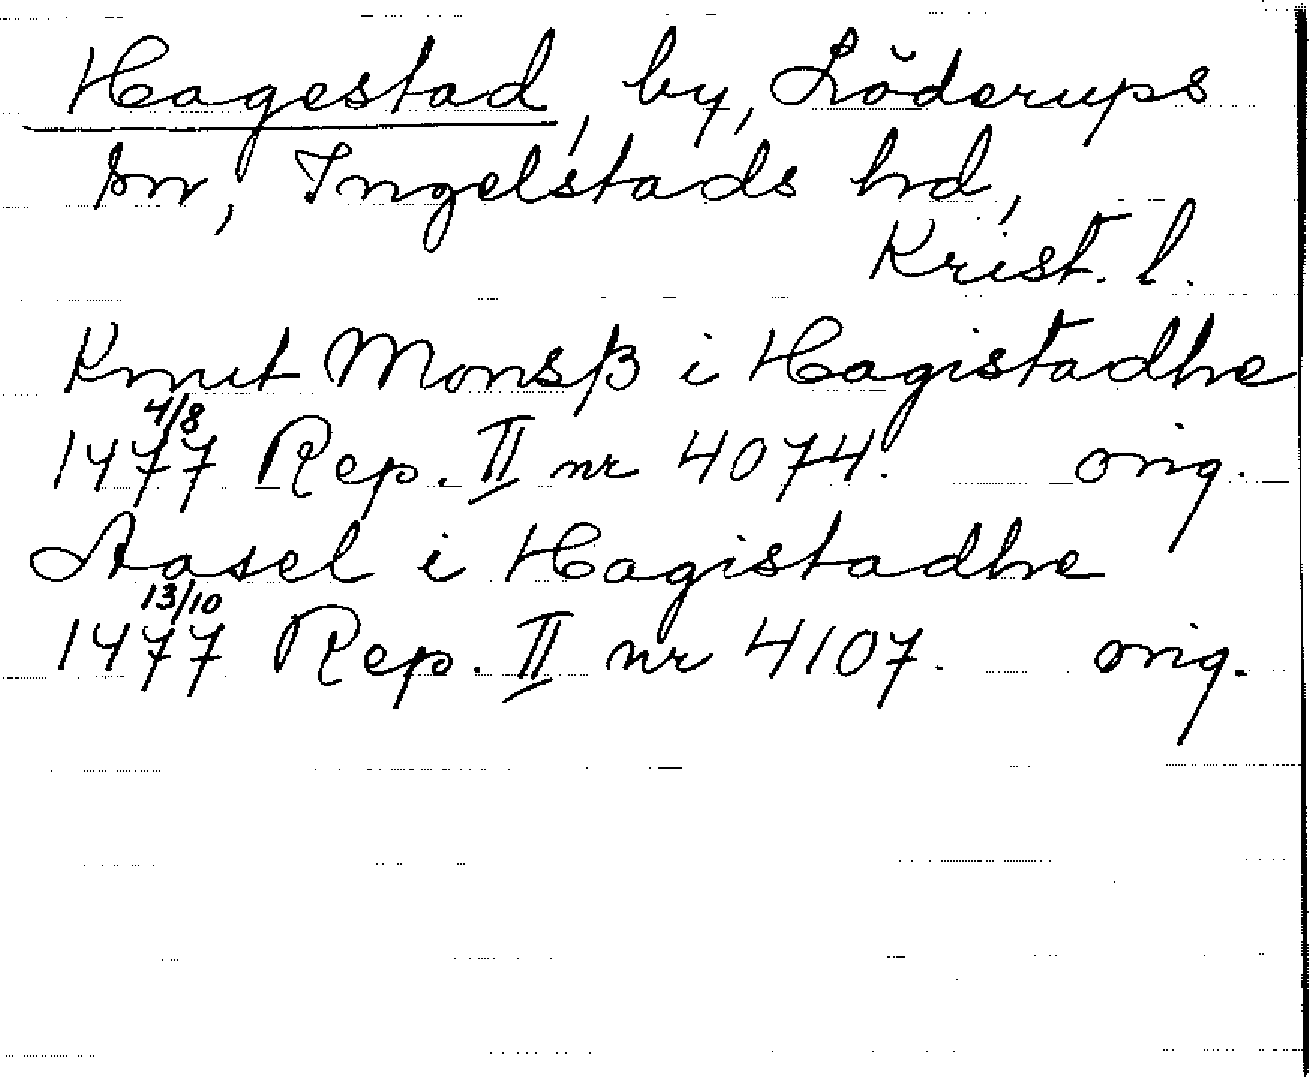 Hagestad, by, Löderups
sn, Ingelstads hd,
Krist. l.
Knut Monsß i Hagistadhe
4/8
1477 Rep. II nr 4074. orig.
Aasel i Hagistadhe
13/10
1477 Rep. II nr 4107. orig.